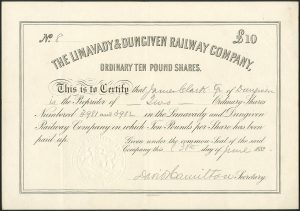 No. 8
£10
THE LIMAVADY & DUNGIVEN RAILWAY COMPANY,
ORDINARY TEN POUND SHARES.
This is to Certify that James Clark of Dungiven
is the Proprietor of Two Ordinary Shares
Numbered 8981 and 8982 in the Limavady and Dungiven
Railway Company on which Ten Pounds per Share has been
paid up.
Given under the common Seal of the said
Company this day of June 188
Hamilton Secretary.